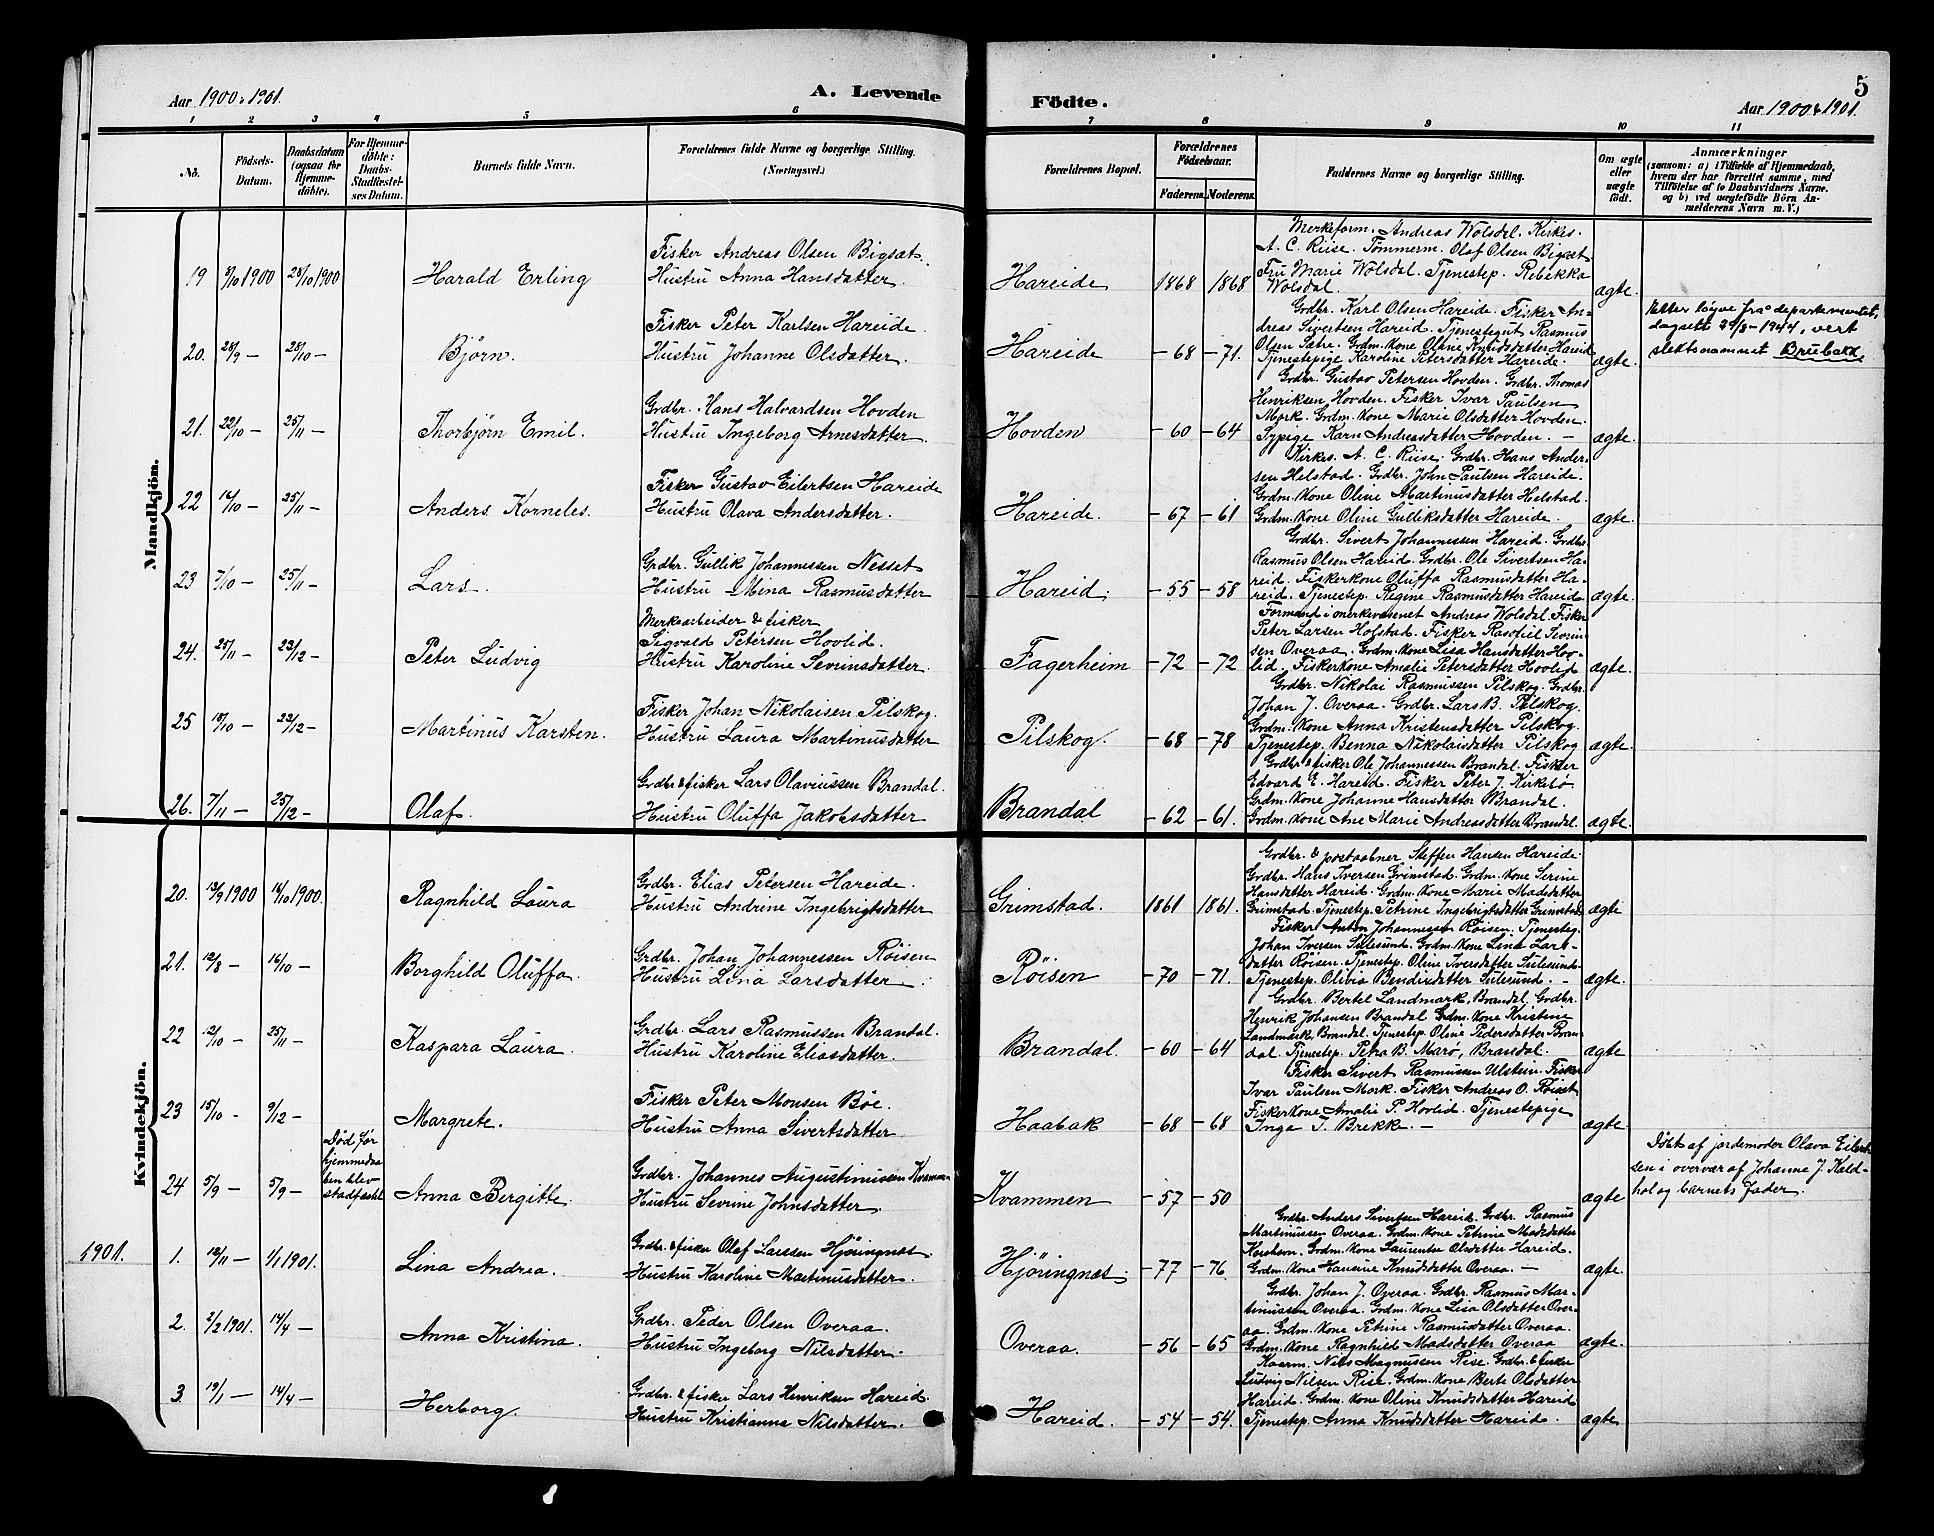 Aar 1900 & 1901.
A. Levende
Födte.
5
Aar 1900 & 1901.
1 2 3 4 5 6 7 8 9 10 11
No.
Födsels-Datum.
Daabsdatum (ogsaa for Hjemme-döbte).
For Hjemme-döbte: Daabs-Stadfæstel-ses Datum.
Barnets fulde Navn.
Forældrenes fulde Navne og borgerlige Stilling. (Næringsvei.)
Forældrenes Bopæl.
Forældrenes Födselsaar.
Faderens. Moderens.
Faddernes Navne og borgerlige Stilling.
Om ægte eller uægte födt.
Anmærkninger
(saasom: a) i Tilfælde af Hjemmedaab, hvem der har forrettet samme, med Tilföielse af to Daabsvidners Navne. og b) ved uægtefödte Börn An-melderens Navn m. V.)
Mandkjön.
19 3/10 1900 28/10 1900 Harald Erling
Fisker Andreas Olsen Bigsæt.
Hustru Anna Hansdatter.
Hareide 1868 1868
Merkeform. Andreas Wolsdal. Kirkes.
A. C. Riise. Tömmerm. Olaf Olsen Bigset
Fru Marie Wolsdal. Tjenestep. Rebekka
Wolsdal.
ægte.
20. 28/9 – 28/10 – Björn.
Fisker Peter Karlsen Hareide.
Hustru Johanne Olsdatter.
Hareide – 68 – 71.
Grdbr. Karl Olsen Hareide. Fisker An-
dreas Sivertsen Hareid. Tjenestegut Rasmus
Olsen Sætre. Grdm. Kone Oline Knudsdatter Hareid
Tjenestepige Karoline Petersdatter Hareide.
ægte.
Etter løyve frå departementet,
dagsett 29/8 – 1944, vert
slektsnamnet Brubakk
21. 22/10 – 25/11 – Thorbjörn Emil.
Grdbr. Hans Halvardsen Hovden
Hustru Ingeborg Arnesdatter.
Hovden – 60 – 64
Grdbr. Gustav Petersen Hovden. Grdbr. Thomas
Henriksen Hovden. Fisker Ivar Paulsen
Mork. Grdm. Kone Marie Olsdatter Hovden.
Sypige Karn Andreasdatter Hovden. –
ægte.
22 14/10 – 25/11 – Anders Korneles.
Fisker Gustav Eilertsen Hareide
Hustru Olava Andersdatter.
Hareide. – 67 – 61
Kirkes. A. C. Riise. Grdbr. Hans Ander-
sen Helstad. Grdbr. John Paulsen Hareide.
Grdm. Kone Oline Martinusdatter Helstad.
Grdm. Kone Oline Gulliksdatter Hareide.
ægte.
23 7/10 – 25/11 – Lars.
Grdbr. Gullik Johannessen Nesset
Hustru Mina Rasmusdatter
Hareid. – 55 – 58
Grdbr. Sivert Johannessen Hareid. Grdbr.
Rasmus Olsen Hareid. Grdbr. Ole Sivertsen Ha-
reid. Fiskerkone Oluffa Rasmusdatter Ha-
reid. Tjenestep. Regine Rasmusdatter Hareid
ægte.
24. 25/11 – 23/12 – Peter Ludvig
Merksarbeider & fisker
Sigvald Petersen Hovlid.
Hustru Karoline Sevrinsdatter.
Fagerheim – 72 – 72
Formand i merkevæsenet Andreas Wolsdal. Fisker
Peter Larsen Holstad. Fisker Sevrin-
sen Overaa. Grdm. Kone Lisa Hansdatter Hov-
lid. Fiskerkone Amalie Petersdatter Hovlid
ægte.
25 18/10 – 23/12 – Martinus Karsten.
Fisker Johan Nikolaisen Pilskog.
Hustru Laura Martinusdatter
Pilskog. – 68 – 78
Grdbr. Nikolai Rasmussen Pilskog. Grdbr.
Johan J. Overaa. Grdbr. Lars B. Pilskog.
Grdm. Kone Anna Kristensdatter Pilskog.
Tjenestep. Benna Nikolaisdatter Pilskog
ægte.
26. 7/11 – 25/12 – Olaf.
Grdbr. & fisker Lars Olaviussen Brandal.
Hustru Oluffa Jakobsdatter
Brandal – 62 – 61.
Grdbr. & fisker Ole Johannessen Brandal. Fisker
Edvard E. Hareid. Fisker Peter J. Kirkebø
Grdm. Kone Johanne Hansdatter Brandal.
Grdm. Kone Ane Marie Andreasdatter Brandal.
ægte.
Kvindekjön.
20. 13/9 1900 14/10 1900. Ragnhild Laura
Grdbr. Elias Petersen Hareide.
Hustru Andrine Ingebrigtsdatter
Grimstad. 1861 1861.
Grdbr. & postaabner Steffen Hansen Hareide
Grdbr. Hans Iversen Grimstad. Grdm. Kone Serine
Hansdatter Hareid. Grdm. Kone Marie Madsdatter
Grimstad. Tjenestep. Petrine Ingebrigtsdatter Grimstad
ægte
21. 12/8 – 14/10 – Borghild Oluffa.
Grdbr. Johan Johannessen Röisen
Hustru Lina Larsdatter.
Röisen – 70 – 71.
Fisker Anton Johannessen Röisen. Tjenesteg.
Johan Iversen Sulesund. Grdm. Kone Lina Lars-
datter Röisen. Tjenestep. Oline Iversdatter Sulesund
Tjenestep. Olivia Bendiksdatter Sulesund. –
ægte.
22 12/10 – 25/11 – Kaspara Laura.
Grdbr. Lars Rasmussen Brandal.
Hustru Karoline Eliasdatter.
Brandal. – 60 – 64
Grdbr. Bertel Landmark, Brandal. Grdbr.
Henrik Johansen Brandal. Grdm. Kone Kristine
Landmark, Brandal. Tjenestep. Oline Pedersdatter Bran-
dal. Tjenestep. Petra B. Marø, Brandal.
ægte
23 15/10 – 9/12 – Margrete.
Fisker Peter Monsen Böe.
Hustru Anna Sivertsdatter.
Haabak – 68 – 68
Fisker Sivert Rasmussen Ulstein. Fisker
Ivar Paulsen Mork. Fisker Andreas O. Röiset
Fiskerkone Amalie P. Hovlid. Tjenestepige
Inga I. Brekk. –
ægte.
24 5/9 – 5/9 –
Död før
hjemmedaa-
ben blev
stadfæstet
Anna Bergitte.
Grdbr. Johannes Augustinussen Kvammen
Hustru Sevrine Johnsdatter.
Kvammen – 57 – 50
ægte
Döbt af jordemoder Olava Eilert-
sen i overvær af Johanne J. Kald-
hol og barnets fader.
1901. 1. 12/11 – 1/1 1901. Lina Andrea.
Grdbr. & fisker Olaf Larsen Hjöringnes.
Hustru Karoline Martinusdatter.
Hjöringnes. – 77 – 76
Grdbr. Anders Sivertsen Hareid. Grdbr. Rasmus
Martinussen Overaa. Grdm. Kone Petrine Madsdatter
Grdm. Kone Laurentse Olsdatter Hareid.
Grdm. Kone Hansine Knudsdatter Overaa. –
ægte.
2. 2/2 1901. 14/4 – Anna Kristina.
Grdbr. Peder Olsen Overaa.
Hustru Ingeborg Nilsdatter.
Overaa. – 56 – 65
Grdbr. Johan J. Overaa. Grdbr. Rasmus Mar-
tinussen Overaa. Grdm. Kone Lisa Olsdatter Over-
aa. Grdm. Kone Petrine Rasmusdatter Overaa.
Grdm. Kone Ragnhild Madsdatter Overaa
ægte.
3 19/1 – 14/4 – Herborg.
Grdbr. & fisker Lars Henriksen Hareid.
Hustru Kristianna Nilsdatter.
Hareid. – 54 – 54.
Kaarm. Nils Magnussen Rise. Grdbr. & fisker
Ludvig Nilsen Rise. Grdm. Kone Berte Olsdatter
Hareid. Grdm. Kone Oline Knudsdatter Hareid
Tjenestep. Anna Knudsdatter Hareid.
ægte